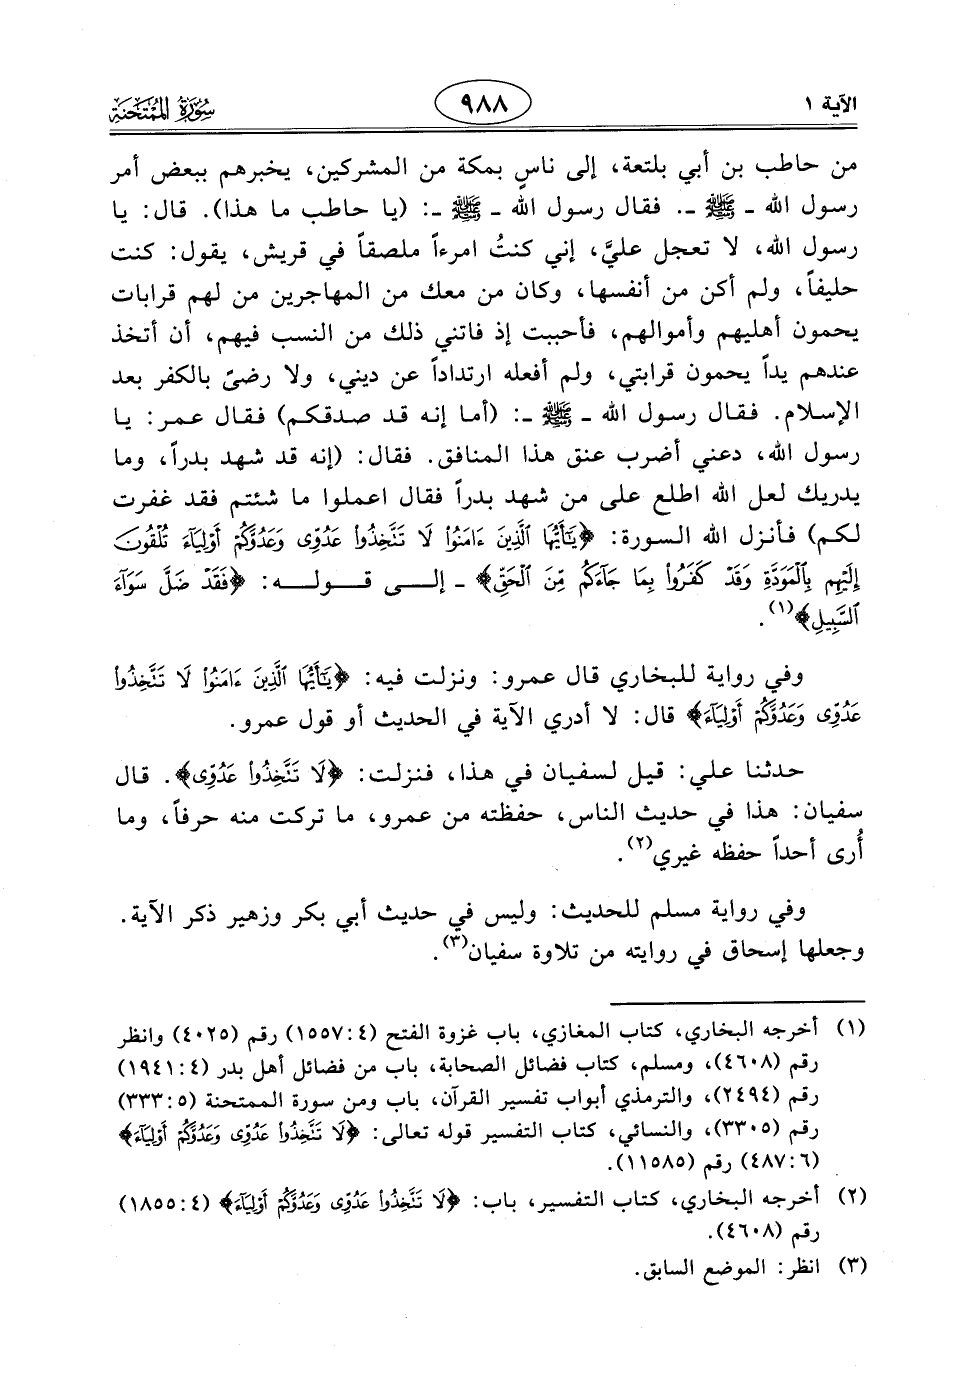 الآية ١
٩٨٨
سُورَةُ المُمْتَحنَةِ
من حاطب بن أبي بلتعة، إلى ناسٍ بمكة من المشركين، يخبرهم ببعض أمر
رسول الله ـ ﷺ ـ. فقال رسول الله ـ ﷺ ـ: (يا حاطب ما هذا). قال: يا
رسول الله، لا تعجل عليَّ، إني كنتُ امرءاً ملصقاً في قريش، يقول: كنت
حليفاً، ولم أكن من أنفسها، وكان من معك من المهاجرين من لهم قرابات
يحمون أهليهم وأموالهم، فأحببت إذ فاتني ذلك من النسب فيهم، أن أتخذ
عندهم يداً يحمون قرابتي، ولم أفعله ارتداداً عن ديني، ولا رضىً بالكفر بعد
الإسلام. فقال رسول الله ـ ﷺ ـ: (أما إنه قد صدقكم) فقال عمر: يا
رسول الله، دعني أضرب عنق هذا المنافق. فقال: (إنه قد شهد بدراً، وما
يدريك لعل الله اطلع على من شهد بدراً فقال اعملوا ما شئتم فقد غفرت
لكم) فأنزل الله السورة: ﴿يَٰٓأَيُّهَا ٱلَّذِينَ ءَامَنُواْ لَا تَتَّخِذُواْ عَدُوِّى وَعَدُوَّكُمْ أَوْلِيَآءَ تُلْقُونَ
إِلَيْهِم بِٱلْمَوَدَّةِ وَقَدْ كَفَرُواْ بِمَا جَآءَكُم مِّنَ ٱلْحَقِّ﴾ ـ إلى قوله: ﴿فَقَدْ ضَلَّ سَوَآءَ
ٱلسَّبِيلِ﴾(١).
وفي رواية للبخاري قال عمرو: ونزلت فيه: ﴿يَٰٓأَيُّهَا ٱلَّذِينَ ءَامَنُواْ لَا تَتَّخِذُواْ
عَدُوِّى وَعَدُوَّكُمْ أَوْلِيَآءَ﴾ قال: لا أدري الآية في الحديث أو قول عمرو.
حدثنا علي: قيل لسفيان في هذا، فنزلت: ﴿لَا تَتَّخِذُواْ عَدُوِّى﴾. قال
سفيان: هذا في حديث الناس، حفظته من عمرو، ما تركت منه حرفاً، وما
أُرى أحداً حفظه غيري(٢).
وفي رواية مسلم للحديث: وليس في حديث أبي بكر وزهير ذكر الآية.
وجعلها إسحاق في روايته من تلاوة سفيان(٣).
(١) أخرجه البخاري، كتاب المغازي، باب غزوة الفتح (٤:١٥٥٧) رقم (٤٠٢٥) وانظر
رقم (٤٦٠٨)، ومسلم، كتاب فضائل الصحابة، باب من فضائل أهل بدر (٤:١٩٤١)
رقم (٢٤٩٤)، والترمذي أبواب تفسير القرآن، باب ومن سورة الممتحنة (٥:٣٣٣)
رقم (٣٣٠٥)، والنسائي، كتاب التفسير قوله تعالى: ﴿لَا تَتَّخِذُواْ عَدُوِّى وَعَدُوَّكُمْ أَوْلِيَآءَ﴾
(٦:٤٨٧) رقم (١١٥٨٥).
(٢) أخرجه البخاري، كتاب التفسير، باب: ﴿لَا تَتَّخِذُواْ عَدُوِّى وَعَدُوَّكُمْ أَوْلِيَآءَ﴾ (٤:١٨٥٥)
رقم (٤٦٠٨).
(٣) انظر: الموضع السابق.